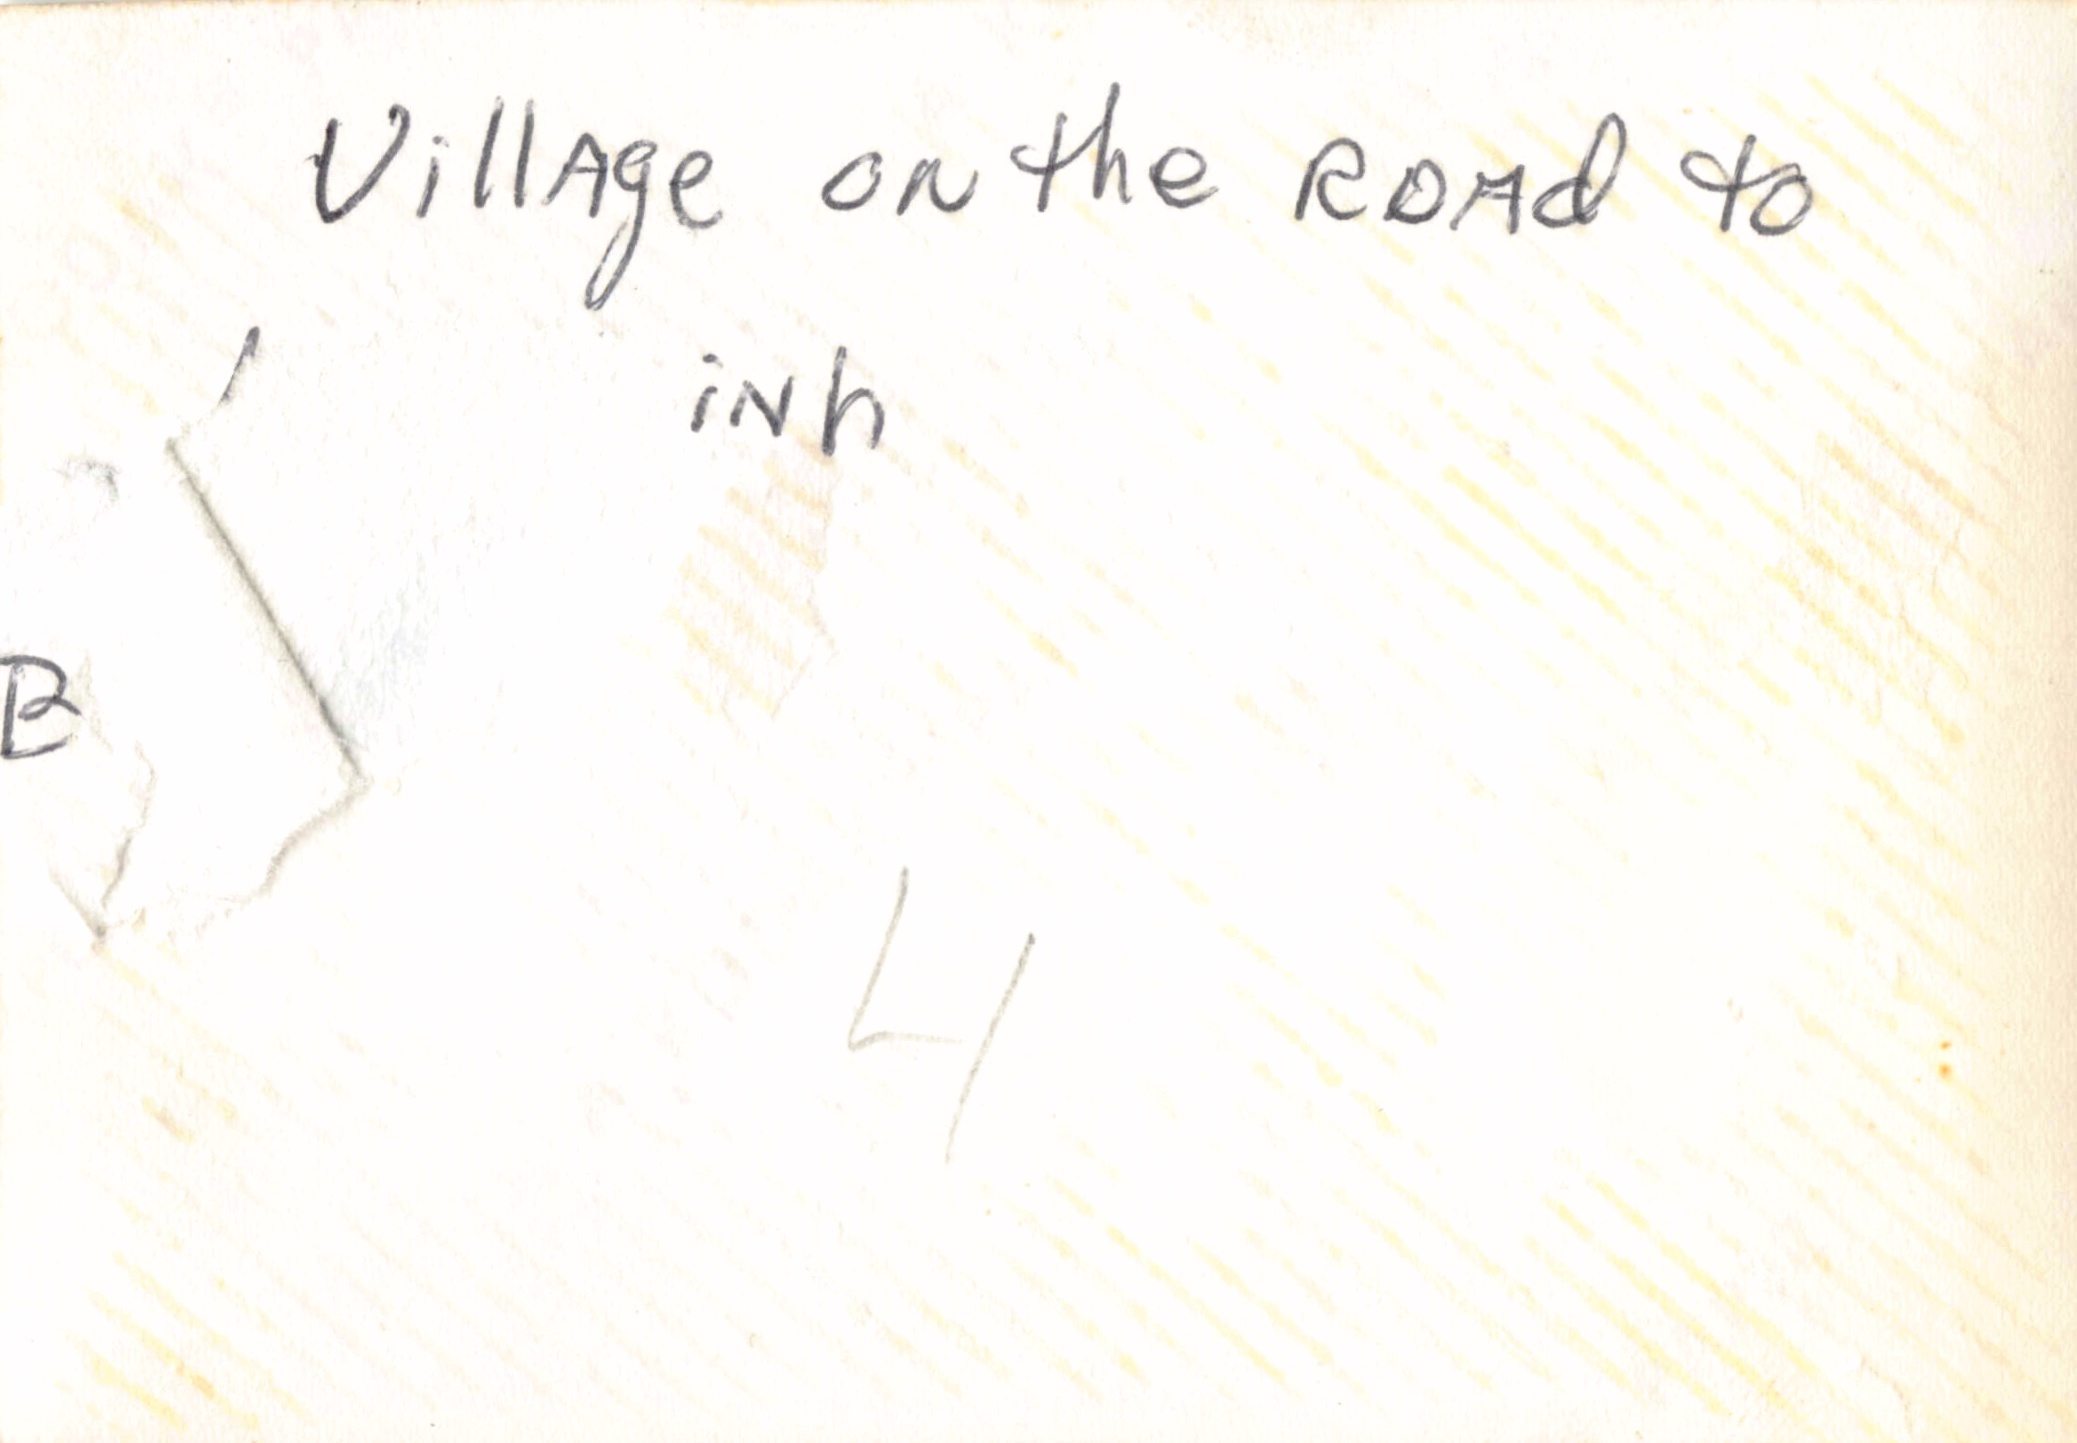 Village on the Road to
inh
B
4